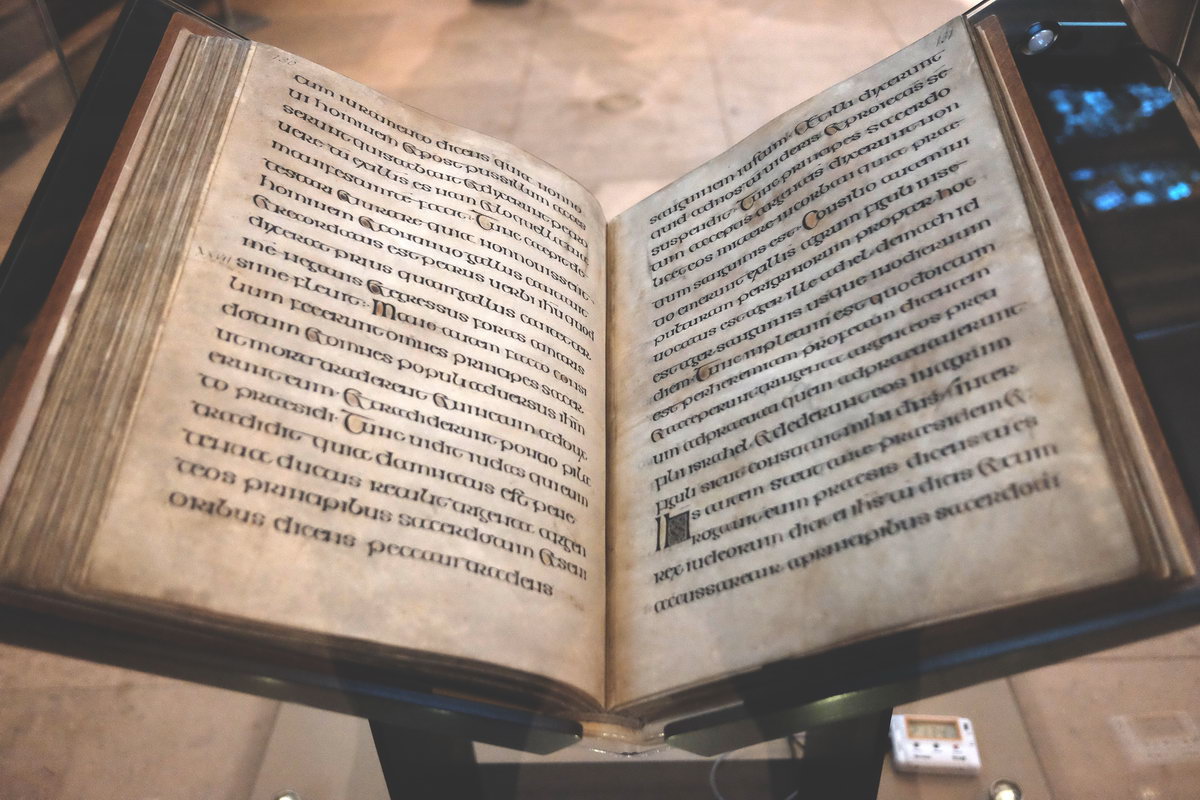 130
cum iuramento dicens quia nonno
ui hominem & post pussillum acces
serunt qui stabant & dixerunt petro
uere tu ex illis es nam & loquella tua
te facit· Tunc coepit de
testari & iurare quia non
hominem & continuo gallus cantauit
& recordatus est petrus uerbi ihu quod
dixerat prius quam gallus cantet ter
me negauis & egressus foras amaris
XXVII sime fleuit· Mane autem facto consi
lium fecerunt omnes principes sacer
dotum & omnes populi aduersus ihm
ut morti traderent & uinctum
erunt eum & tradiderunt pontio pila
to praesidi· Tunc uidit iudas qui eum
tradidit quia damnatus est pene
tentia ductus retulit argen
teos principibus sacerdotum & seni
oribus dicens peccaui tradens
131
sanguinem iustum· At illi dixerunt
quid ad nos tu uideris & proiectis
suspendit· Tunc principes sacerdo
tum acceptis argenteis dixerunt non
licet eos mittere in corban quia prae
tium sanguinis est· Consilio autem ini
to emerunt ex illis agrum figuli in se
pulturam perigrinorum propter hoc
uocatus est ager ille id
est ager sanguinis usque in hodiernum
diem· Tunc impletum est quod dictum
est per heremiam profetam dicentem
& acceperunt triginta argenteos preti
um adpraetiati quem adpraetiauerunt
filii israhel & dederunt eos in agrum
figuli sicut constituit mihi dns
Ihs autem stetit ante praesidem &
rogauit eum praeses dicens tu es
rex iudeorum dixit ihs tu dicis & cum
accussaretur a principibus sacerdotum